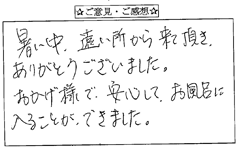 ☆ご意見・ご感想☆
暑い中、遠い所から来て頂き、
ありがとうございました。
おかげ様で、安心して、お風呂に
入ることが、できました。